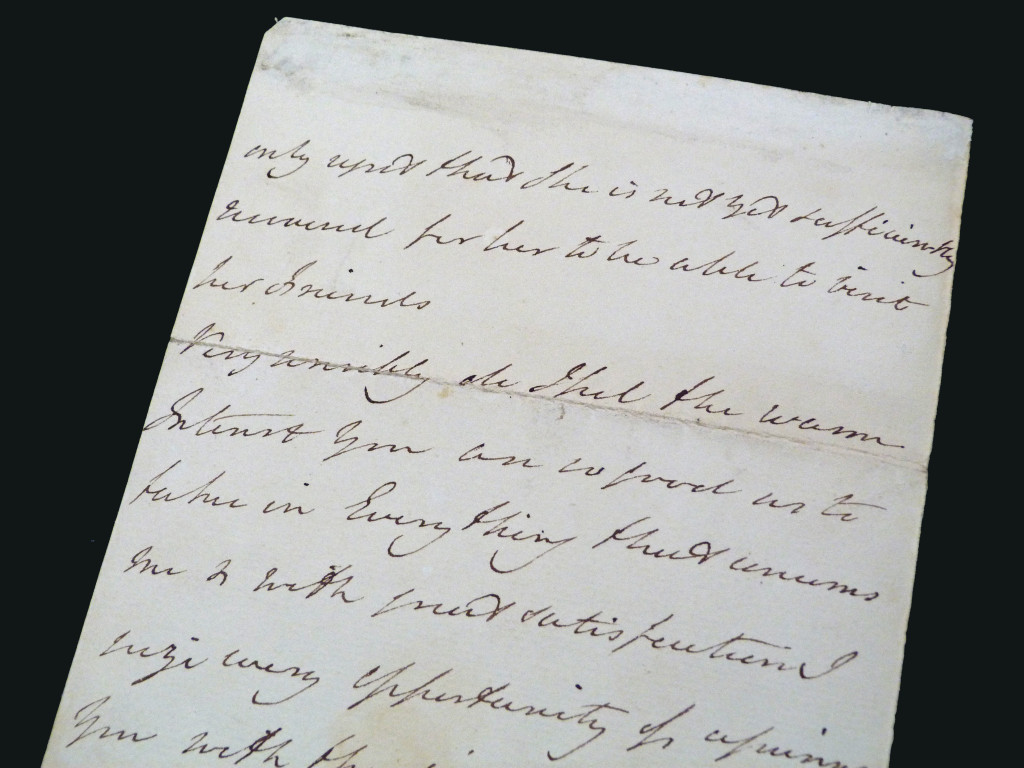 only upset that she is not yet sufficiently
recovered for her to be able to visit
her Friends
Very sensibly do I feel the warm
Interest You are so good as to
take in Every thing that concerns
me & with great satisfaction I
seize every opportunity of
You with the